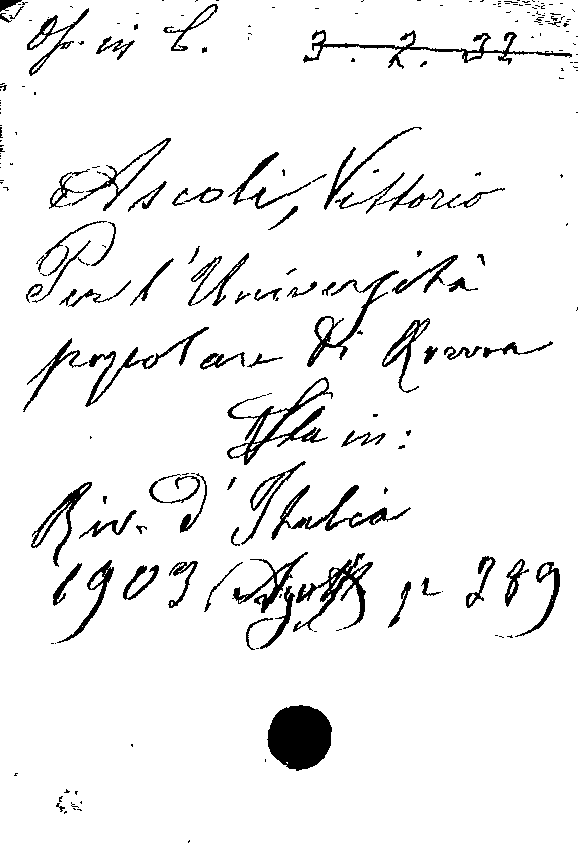 Op. in C. 3. 2. 32
Ascoli, Vittorio
Per l'Università
popolare di Roma
Sta in:
Riv. d'Italia
1903 (Agosto) p 289